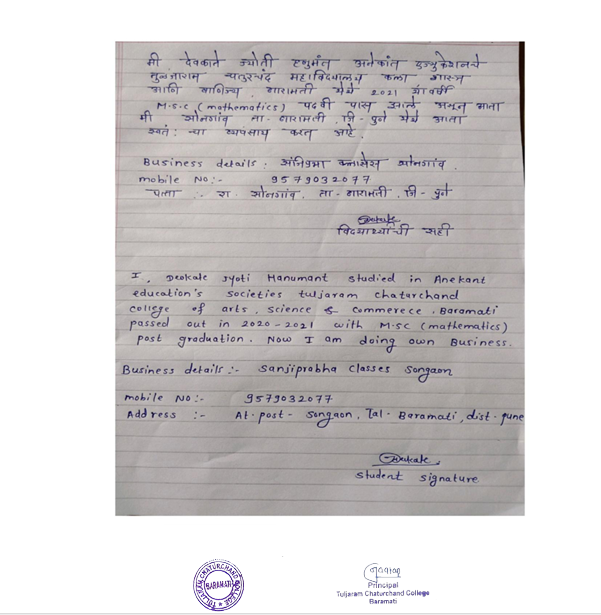 मी देवकाते ज्योती हणुमंत अनेकांत एज्युकेशनचे
तुळजाराम चतुरचंद महाविद्यालय कला शास्त्र
आणि वाणिज्य बारामती येथे 2021 यावर्षी
M.S.C (mathematics) पदवी पास झाले असून आता
मी सोनगांव ता- बारामती, जि- पुणे येथे आता
स्वतः चा व्यवसाय करत आहे.
Business details : क्लासेस सोनगांव.
mobile No:- 9579032077
पत्ता :- रा. सोनगांव, ता- बारामती, जि- पुणे
Deokate
विद्यार्थ्यांची सही
I, Deokate Jyoti Hanumant studied in Anekant
education's societies tuljaram chatarchand
college of arts, science & commerece, Baramati
passed out in 2020-2021 with M.SC (mathematics)
post graduation. Now I am doing own Business.
Business details :- Sanjiprabha classes Songaon
mobile No:- 9579032077
Address :- At. post- Songaon, Tal- Baramati, dist- pune
Deokate
student signature
TULJARAM CHATURCHAND COLLEGE
BARAMATI
Principal
Tuljaram Chaturchand College
Baramati